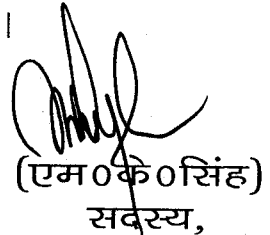 (एम०के०सिंह)
सदस्य,